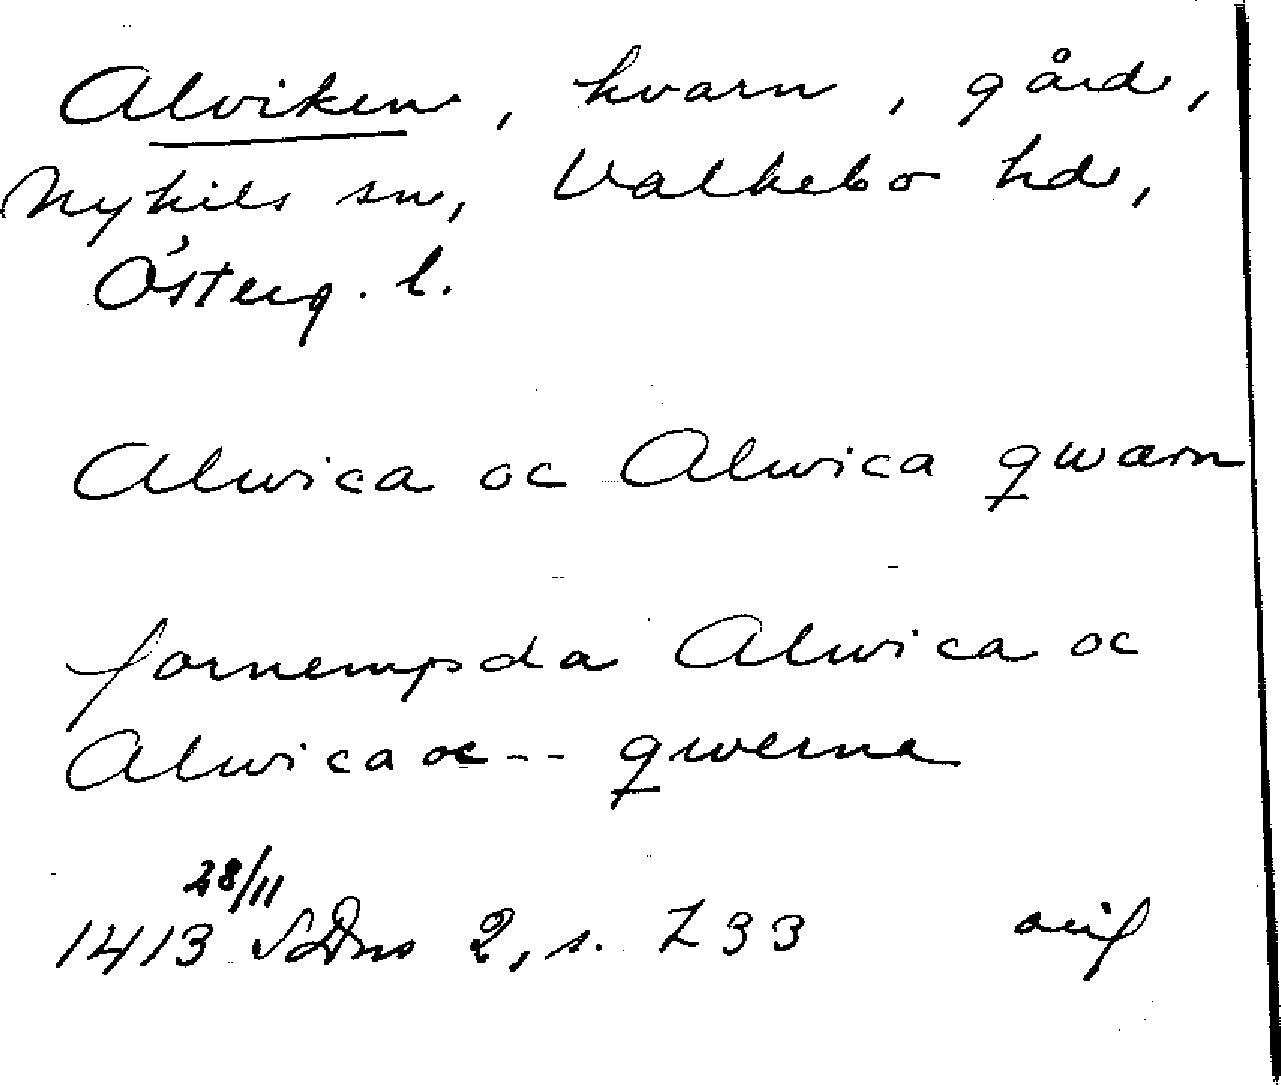 Alviken, kvarn, gård,
Nykils sn, Valkebo hd,
Österg. l.
Alwica oc Alwica qwærn
fornempda Alwica oc
Alwica oc -- qwerne
28/11
1413 SDns 2, s. 733